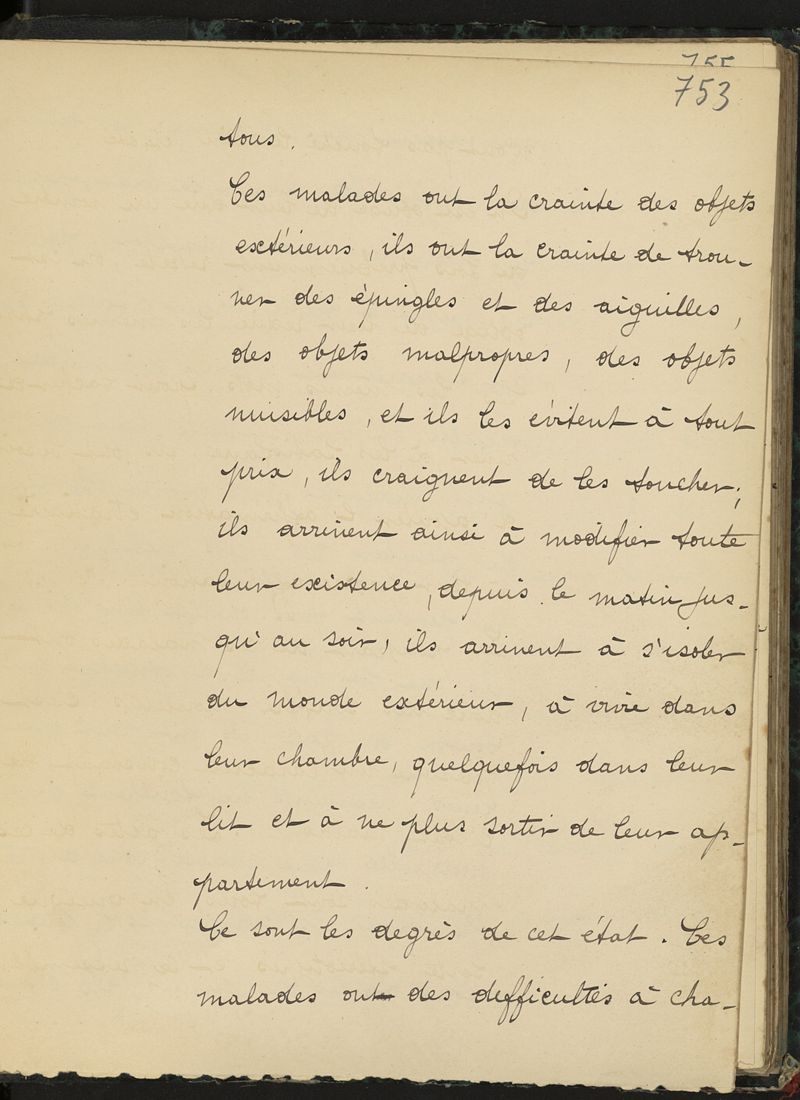 755
753
tous.
Ces malades ont la crainte des objets
extérieurs, ils ont la crainte de trou-
ver des épingles et des aiguilles,
des objets malpropres, des objets
nuisibles, et ils les évitent à tout
prix, ils craignent de les toucher;
ils arrivent ainsi à modifier toute
leur existence, depuis le matin jus-
qu'au soir, ils arrivent à s'isoler
du monde extérieur, à vivre dans
leur chambre, quelquefois dans leur
lit et à ne plus sortir de leur ap-
partement.
Ce sont les degrès de cet état. Ces
malades ont des difficultés à cha-